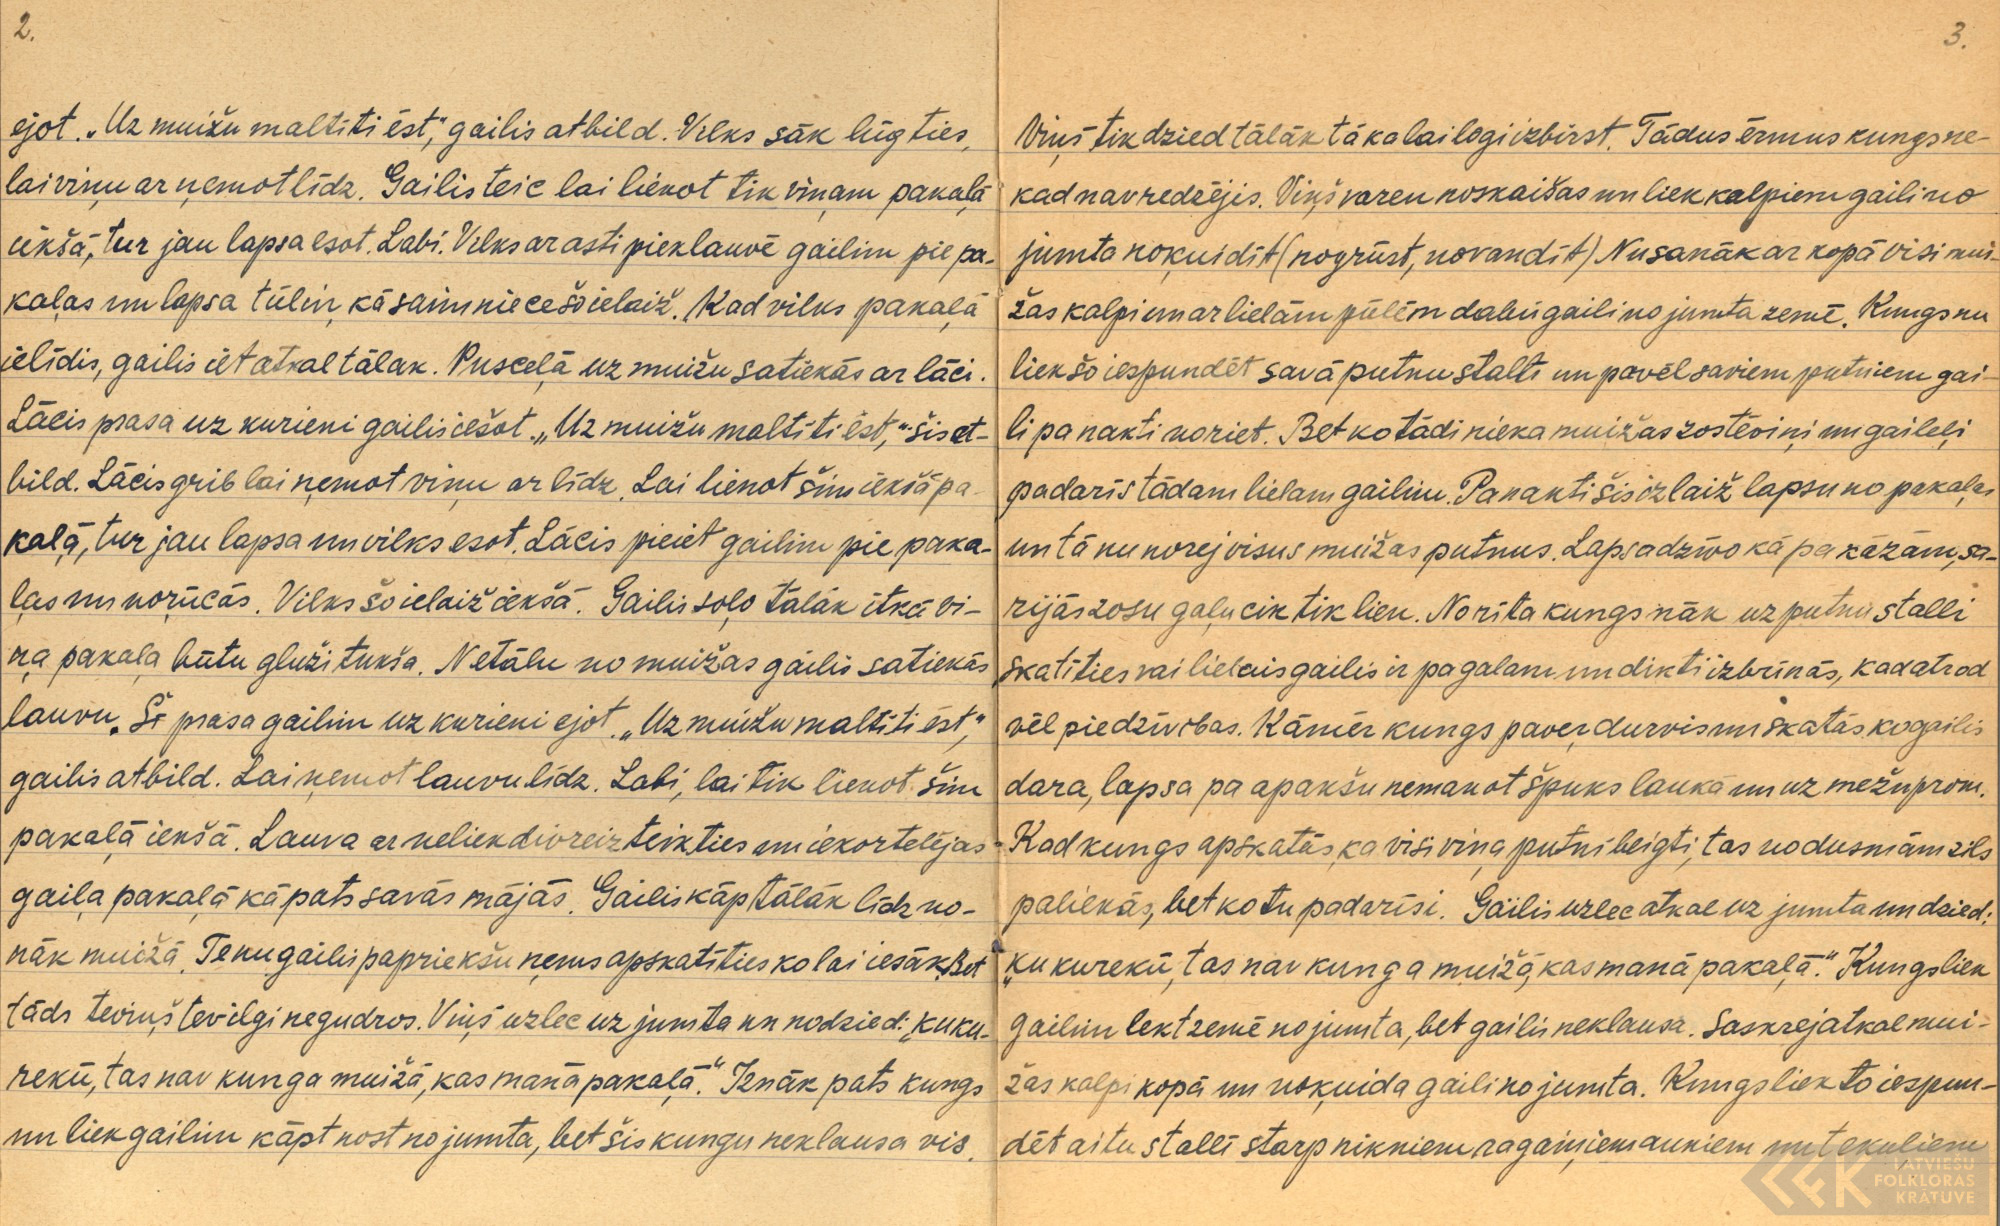 2.
ejot. „Uz muižu maltīti ēst,“ gailis atbild. Vilks sāk lūgties,
lai viņu ar ņemot līdz. Gailis teic lai lienot tik viņam pakaļā
iekšā, tur jau lapsa esot. Labi. Vilks ar asti pieklauvē gailim pie pa-
kaļas un lapsa tūliņ kā saimniece šo ielaiž. Kad vilks pakaļā
ielīdis, gailis iet atkal tālāk. Pusceļā uz muižu satiekās ar lāci.
Lācis prasa uz kurieni gailis iešot. „Uz muižu maltīti ēst,“ šis at-
bild. Lācis grib lai ņemot viņu ar līdz. Lai lienot šim iekšā pa-
kaļā, tur jau lapsa un vilks esot. Lācis pieiet gailim pie paka-
ļas un norūcās. Vilks šo ielaiž iekšā. Gailis soļo tālāk itkā vi-
ņa pakaļa būtu gluži tukša. Netālu no muižas gailis satiekās
lauvu. Šī prasa gailim uz kurieni ejot. „Uz muižu maltīti ēst,“
gailis atbild. Lai ņemot lauvu līdz. Labi, lai tik lienot šim
pakaļā iekšā. Lauva ar neliek divreiz teikties un iekortelējas
gaiļa pakaļā kā pats savās mājās. Gailis kāp tālāk līdz no-
nāk muižā. Te nu gailis papriekšu ņems apskatīties ko lai iesāk. Bet
tāds teviņš tev ilgi negudros. Viņš uzlec uz jumta un nodzied: „kuku-
rekū, tas nav kunga muižā, kas manā pakaļā.“ Iznāk pats kungs
un liek gailim kāpt nost no jumta, bet šis kungu neklausa vis.
3.
Viņš tik dzied tālāk tā ka lai logi izbirst. Tādus ērmus kungs ne-
kad nav redzējis. Viņš varen noskaišas un liek kalpiem gaili no
jumta nokuidīt (nogrūst, novandīt) Nu sanāk ar kopā visi mui-
žas kalpi un ar lielām pūlēm dabū gaili no jumta zemē. Kungs nu
liek šo iespundēt savā putnu stallī un pavēl saviem putniem gai-
li pa nakti noriet. Bet ko tādi nieka muižas zostēviņi un gaileļi
padarīs tādam lielam gailim. Pa nakti šis izlaiž lapsu no pakaļas
un tā nu norej visus muižas putnus. Lapsa dzīvo kā pa kāzām, sa-
rijās zosu gaļu cik tik lien. No rīta kungs nāk uz putnu stalli
skatīties vai lielais gailis ir pagalam un dikti izbrīnās, kad atrod
vēl pie dzīvības. Kāmēr kungs paver durvis un skatās ko gailis
dara, lapsa pa apakšu nemanot špuks laukā un uz mežu prom.
Kad kungs apskatās, ka visi viņa putni beigti, tas no dusmām zils
paliekās, bet ko tu padarīsi. Gailis uzlec atkal uz jumta un dzied:
„kukurekū, tas nav kunga muižā, kas manā pakaļā.“ Kungs liek
gailim lekt zemē no jumta, bet gailis neklausa. Saskrej atkal mui-
žas kalpi kopā un nokuida gaili no jumta. Kungs liek to iespun-
dēt aitu stallī starp nikniem ragaiņiem auniem un tekuļiem
LATVIEŠU
FOLKLORAS
KRĀTUVE